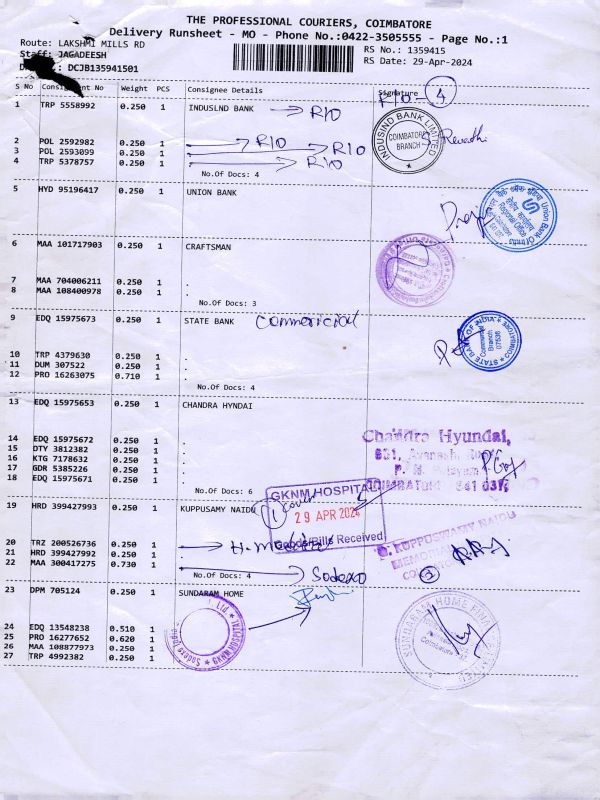 THE PROFESSIONAL COURIERS, COIMBATORE
Delivery Runsheet - MO - Phone No.:0422-3505555 - Page No.:1
Route: LAKSHMI MILLS RD
RS No.: 1359415
Staff: JAGADEESH
RS Date: 29-Apr-2024
: DCJB135941501
S No Consignment No Weight PCS Consignee Details Signature
R/O - 4
1 TRP 5558992 0.250 1 INDUSLND BANK R/O
INDUSIND BANK LIMITED
COIMBATORE
BRANCH
Revathi
2 POL 2592982 0.250 1 R/O
3 POL 2593099 0.250 1 R/O
4 TRP 5378757 0.250 1 R/O
No.Of Docs: 4
5 HYD 95196417 0.250 1 UNION BANK
Union Bank Of India
Regional Office
6 MAA 101717903 0.250 1 CRAFTSMAN
7 MAA 704006211 0.250 1 .
8 MAA 108400978 0.250 1 .
No.Of Docs: 3
9 EDQ 15975673 0.250 1 STATE BANK Commericial
STATE BANK OF INDIA
Commercial
Branch
07536
COIMBATORE
10 TRP 4379630 0.250 1 .
11 DUM 307522 0.250 1 .
12 PRO 16263075 0.710 1 .
No.Of Docs: 4
13 EDQ 15975653 0.250 1 CHANDRA HYNDAI
14 EDQ 15975672 0.250 1 .
15 DTY 3812382 0.250 1 .
16 KTG 7178632 0.250 1 .
17 GDR 5385226 0.250 1 .
18 EDQ 15975671 0.250 1 .
No.Of Docs: 6
Chandra Hyundai,
COIMBATORE 641 037
GKNM HOSPITAL
19 HRD 399427993 0.250 1 KUPPUSAMY NAIDU
1 cover
29 APR 2024
Goods/Bills Received
G. KUPPUSWAMY NAIDU
MEMORIAL
20 TRZ 200526736 0.250 1
21 HRD 399427992 0.250 1
22 MAA 300417275 0.730 1 Sodexo
No.Of Docs: 4
23 DPM 705124 0.250 1 SUNDARAM HOME
SUNDARAM HOME FINANCE LIMITED
Coimbatore
24 EDQ 13548238 0.510 1
25 PRO 16277652 0.620 1
26 MAA 108877973 0.250 1
27 TRP 4992382 0.250 1